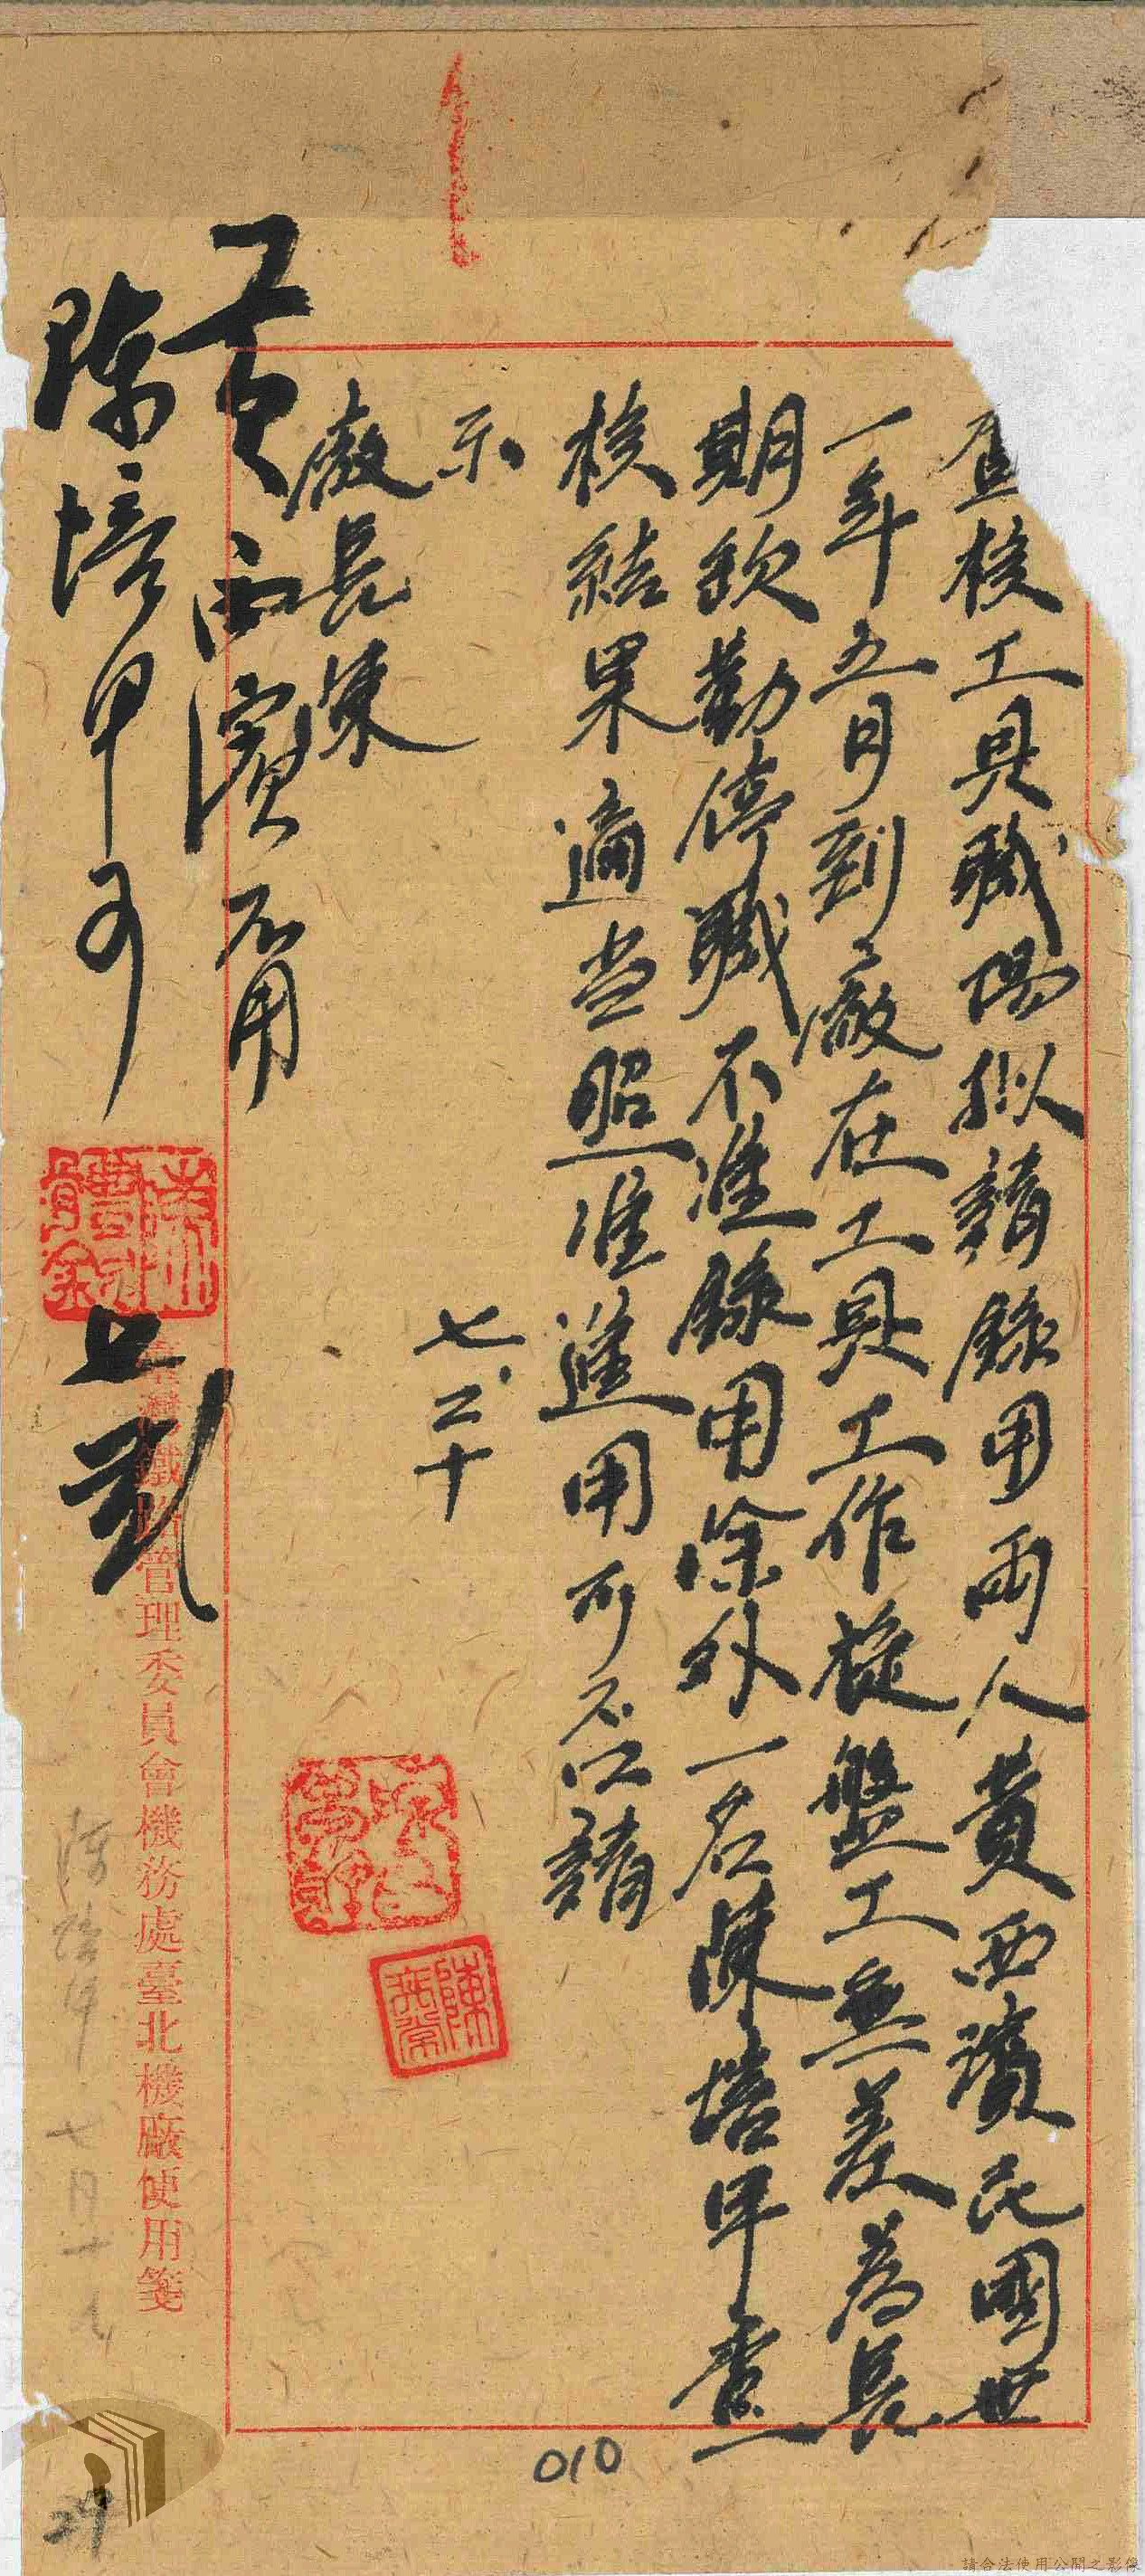 查核工具職場擬請錄用兩人黃西濱民國卅
一年五月到廠在工具工作旋盤工無差為長
期欽勤停職不准錄用除外一名陳培甲查
核結果適當照准進用可否請
示
廠長陳
七.二十
黃西濱不用
陳培甲可
臺灣鐵路管理委員會機務處臺北機廠使用箋
陳培甲 七月十九
010
29
請合法使用公開之影像